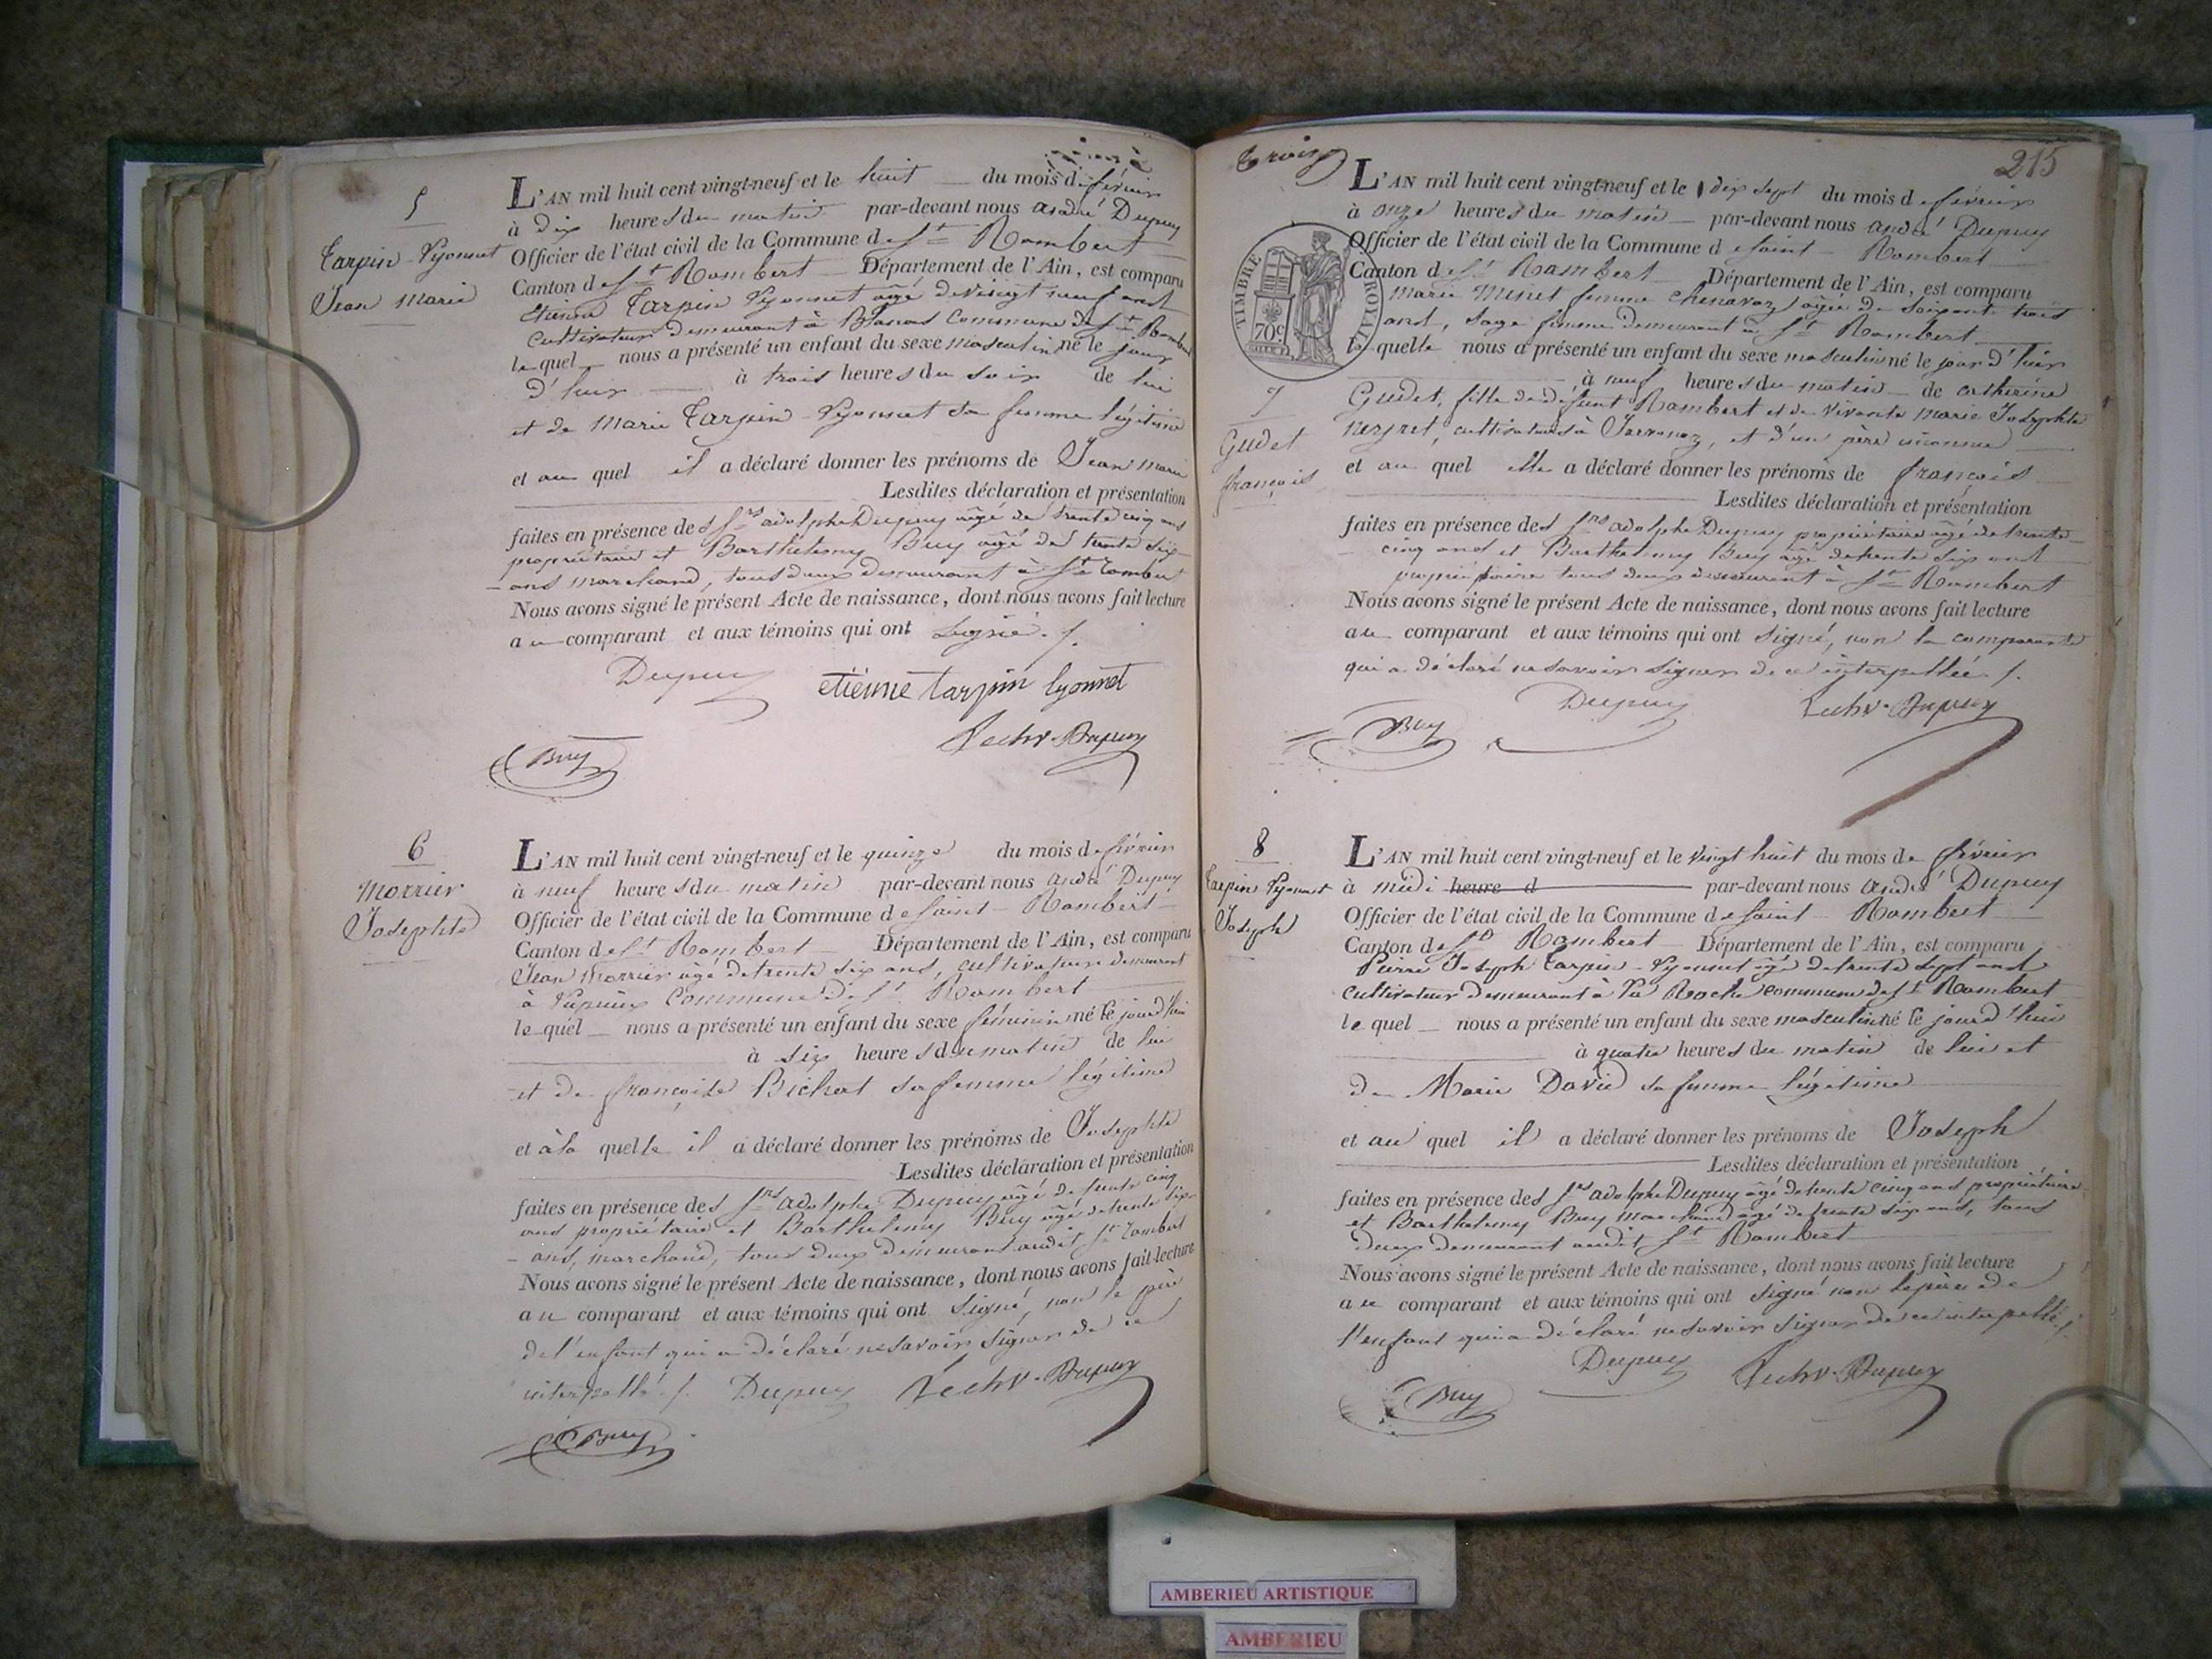 5
Tarpin-Lyonnet
Jean Marie
L'AN mil huit cent vingt-neuf et le huit du mois de février
à dix heures du matin par-devant nous andré Dupuy
Officier de l'état civil de la Commune de St Rambert
Canton de St Rambert Département de l'Ain, est comparu
Etienne Tarpin Lyonnet agé de vingt neuf ans
cultivateur demeurant à Blanas Commune de St Rambert
lequel nous a présenté un enfant du sexe masculin né le jour
d'hier à trois heures du soir de lui
et de Marie Tarpin-Lyonnet sa femme légitime
et au quel il a déclaré donner les prénoms de Jean Marie
Lesdites déclaration et présentation
faites en présence des Srs adolphe Dupuy agé de trente cinq ans
propriétaire et Barthelemy Buy agé de trente six
ans marchand, tous deux demeurant à St Rambert
Nous avons signé le présent Acte de naissance, dont nous avons fait lecture
au comparant et aux témoins qui ont signé ./.
Dupuy etienne tarpin lyonnet
Dupuy
Buy
6
Morrier
Josephte
L'AN mil huit cent vingt-neuf et le quinze du mois de février
à neuf heures du matin par-devant nous andré Dupuy
Officier de l'état civil de la Commune de Saint-Rambert
Canton de St Rambert Département de l'Ain, est comparu
Jean Morrier agé de trente six ans, cultivateur demeurant
à Commune de St Rambert
lequel nous a présenté un enfant du sexe féminin né le jourd'hui
à six heures du matin de lui
et de françoise Bichat sa femme légitime
et à la quelle il a déclaré donner les prénoms de Josephte
Lesdites déclaration et présentation
faites en présence des Srs adolphe Dupuy agé de trente cinq
ans propriétaire et Barthelemy Buy agé de trente six
ans, marchand, tous deux demeurant audit St Rambert
Nous avons signé le présent Acte de naissance, dont nous avons fait lecture
au comparant et aux témoins qui ont signé, non le père
de l'enfant qui a déclaré ne savoir signer de ce
interpellé ./. Dupuy Dupuy
Buy
Trois
215
TIMBRE ROYAL
70c
7
Gudet
françois
L'AN mil huit cent vingt-neuf et le dix sept du mois de février
à onze heures du matin par-devant nous andré Dupuy
Officier de l'état civil de la Commune de Saint-Rambert
Canton de St Rambert Département de l'Ain, est comparu
Marie Minet femme Chenavaz, agée de soixante trois
ans, sage femme demeurant à St Rambert
laquelle nous a présenté un enfant du sexe masculin né le jour d'hier
à neuf heures du matin de catherine
Gudet, fille de défunt Rambert et de vivante Marie Josephte
cultivateurs à et d'un père inconnu
et au quel elle a déclaré donner les prénoms de françois
Lesdites déclaration et présentation
faites en présence des Srs adolphe Dupuy propriétaire agé de trente
cinq ans et Barthelemy Buy agé de trente six ans
propriétaire tous deux demeurant à St Rambert
Nous avons signé le présent Acte de naissance, dont nous avons fait lecture
au comparant et aux témoins qui ont signé, non la comparante
qui a déclaré ne savoir signer de ce interpellée ./.
Dupuy Dupuy
Buy
8
Tarpin Lyonnet
Joseph
L'AN mil huit cent vingt-neuf et le vingt huit du mois de février
à midi heure d par-devant nous andré Dupuy
Officier de l'état civil de la Commune de Saint-Rambert
Canton de St Rambert Département de l'Ain, est comparu
Pierre Joseph Tarpin-Lyonnet agé de trente sept ans
cultivateur demeurant à La Roche commune de St Rambert
lequel nous a présenté un enfant du sexe masculin né le jourd'hui
à quatre heures du matin de lui et
de Marie David sa femme légitime
et au quel il a déclaré donner les prénoms de Joseph
Lesdites déclaration et présentation
faites en présence des Srs adolphe Dupuy agé de trente cinq ans propriétaire
et Barthelemy Buy marchand agé de trente six ans, tous
deux demeurant audit St Rambert
Nous avons signé le présent Acte de naissance, dont nous avons fait lecture
au comparant et aux témoins qui ont signé non le père de
l'enfant qui a déclaré ne savoir signer de ce interpellé ./.
Dupuy Dupuy
Buy
AMBERIEU ARTISTIQUE
AMBERIEU